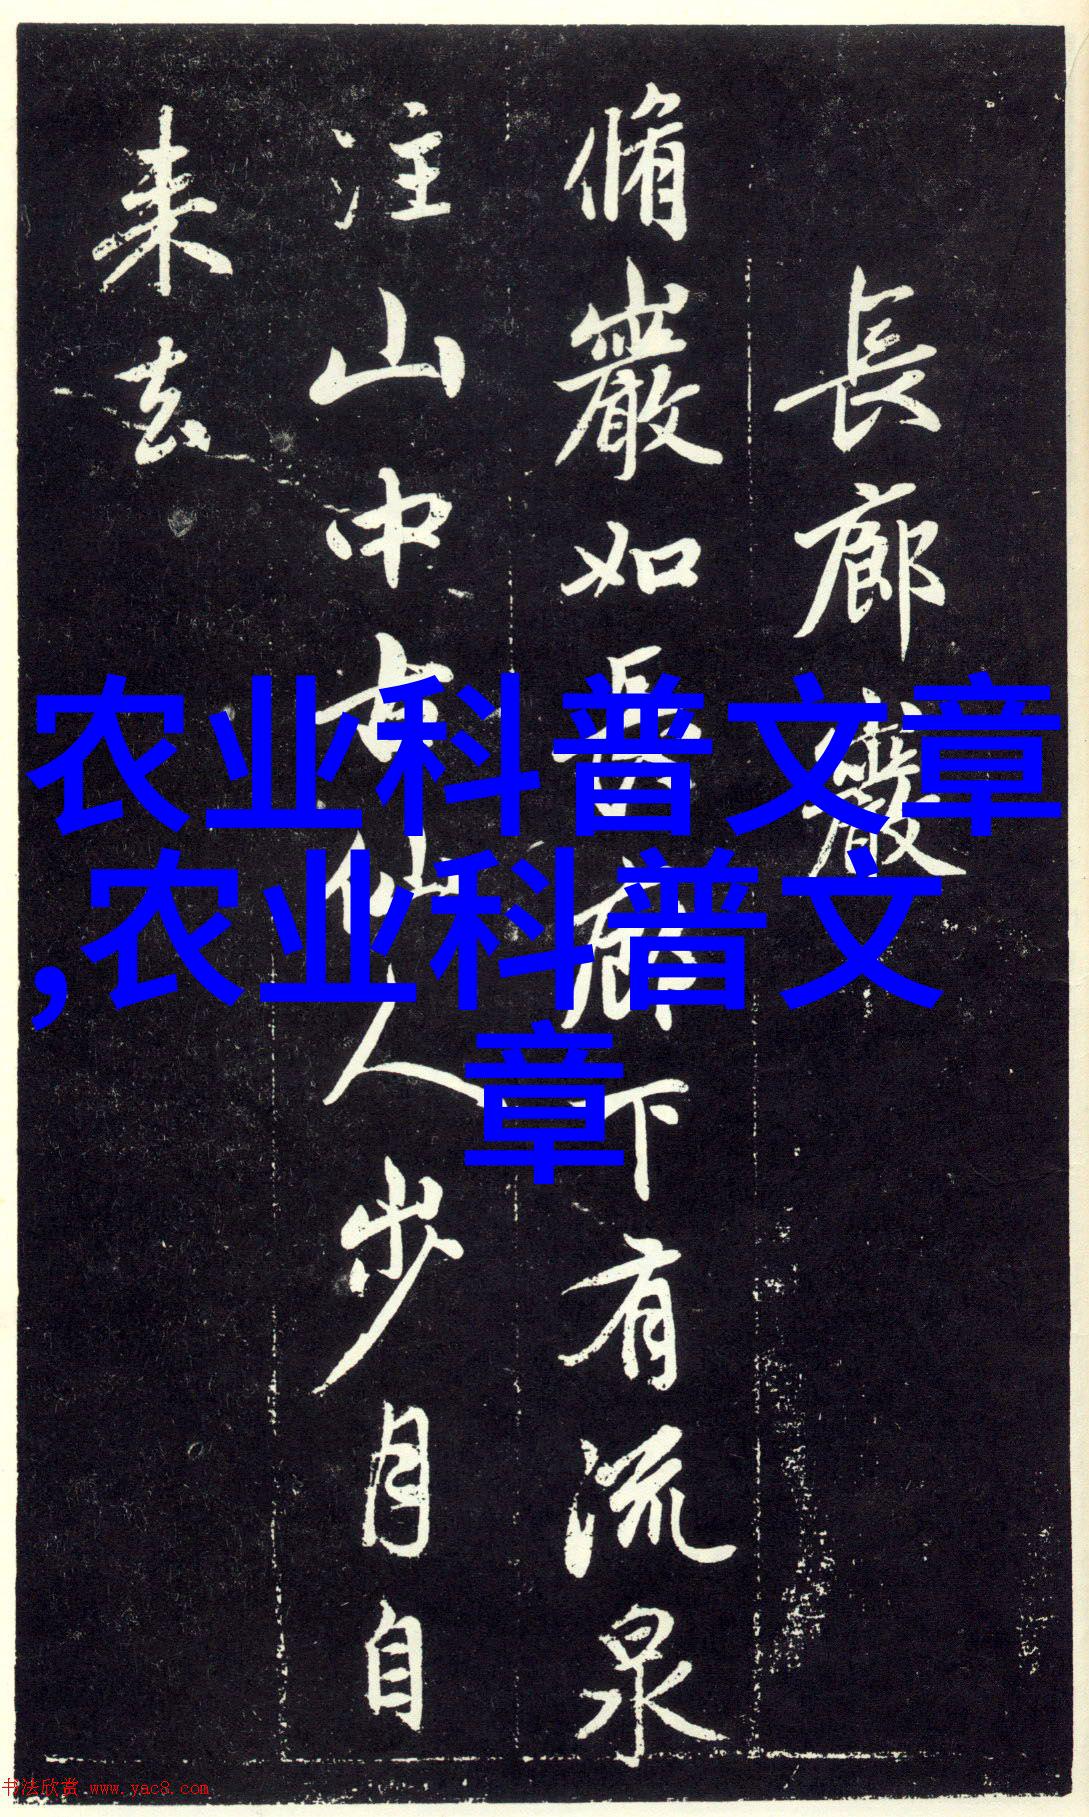 長廊巖
脩巖如長廊下有流泉
注山中古仙人步月自
来去
农业科普文章
,农业科普文
章
书法欣赏 www.yac8.com